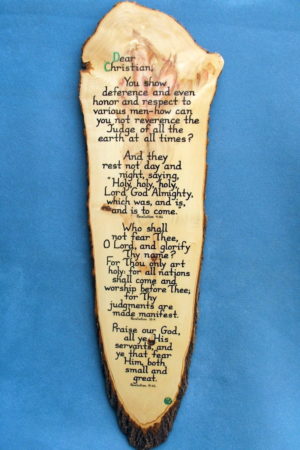 Dear
Christian,
You show
deference and even
honor and respect to
various men-how can
you not reverence the
Judge of all the
earth at all times?
And they
rest not day and
night, saying,
"Holy, holy, holy,
Lord God Almighty,
which was, and is,
and is to come.
Revelation 4:8b
Who shall
not fear Thee,
O Lord, and glorify
Thy name?
For Thou only art
holy: for all nations
shall come and
worship before Thee;
for Thy
judgments are
made manifest.
Revelation 15:4
Praise our God,
all ye His
servants, and
ye that fear
Him, both
small and
great.
Revelation 19:5b